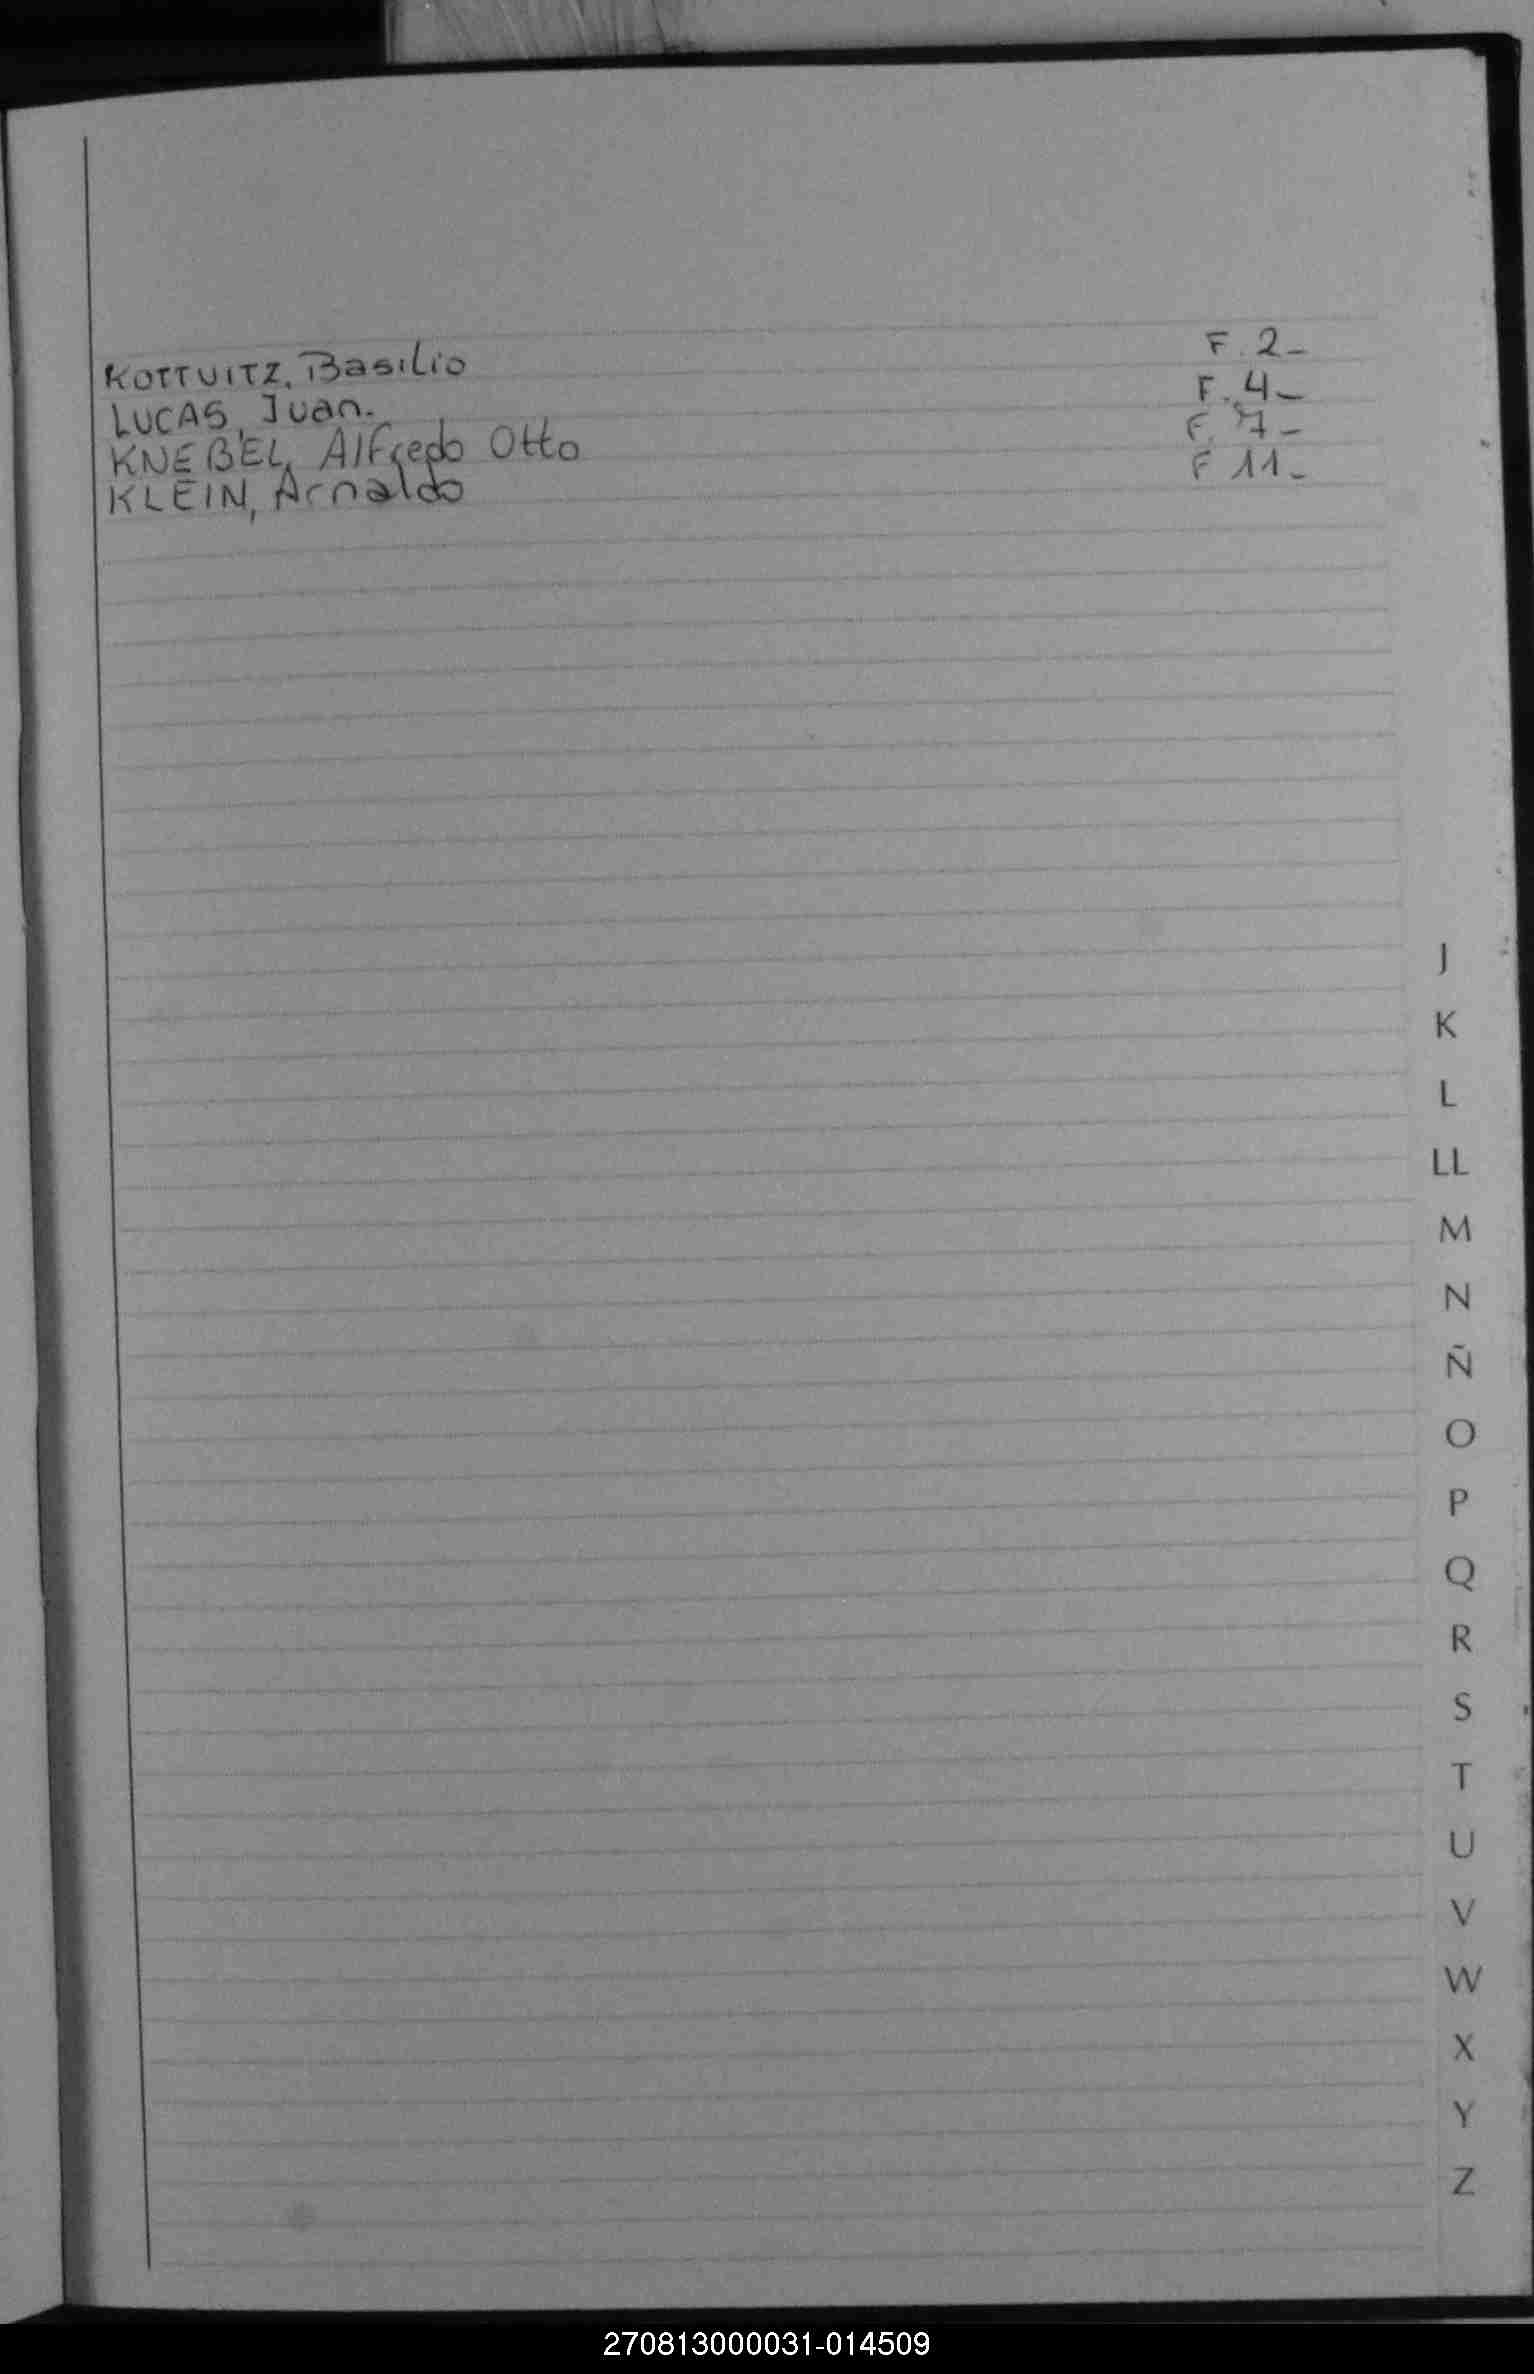 KOTTUITZ, Basilio F. 2_
LUCAS, Juan. F. 4_
KNEBEL, Alfredo Otto F. 7_
KLEIN, Arnaldo F 11_
J
K
L
LL
M
N
Ñ
O
P
Q
R
S
T
U
V
W
X
Y
Z
270813000031-014509